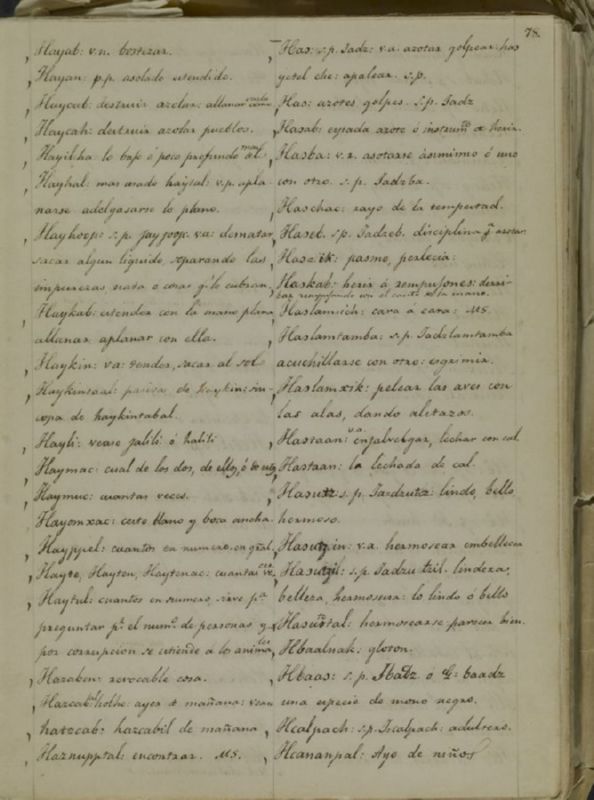 78.
Hayab: v.n. bostezar.
Hayan: p.p. asolado estendido.
Haycab: destruir azolar: allanar
Haycah: destruir azolar pueblos.
Hayilha: lo bajo ó poco profundo mar
Hayhal: mas usado haytal: v.p. apla-
narse adelgasarse lo plano.
Hayhoop: s.p. jayjoop. va: desnatar
sacar algun líquido, separando las
impurezas, nata ó cosas q.e lo cubran.
Haykab: estender con la mano plana
allanar aplanar con ella.
Haykin: va: tender, sacar al sol
Haykintaal: pasiva de haykin: sin-
copa de haykintabal.
Hayli: vease jalili ó halili
Haymac: cual de los dos, de ellos, ó de
Haymuc: cuantas veces.
Hayomxac: cesto llano y boca ancha.
Hayppel: cuantos en numero, en gñal.
Hayte, Hayten, Haytenac: cuantas vec.es
Haytul: cuantos en numero, sirve p.a
preguntar p.r el num.o de personas y
por corrupcion se estiende á lo animales
Hazaben: revocable cosa.
Hazcabholhe: ayer de mañana: vease
hatzcab: hazcabil de mañana
Haznupptal: encontrar. MS.
Has: s.p. Jadz: v.a. azotar golpear: has
yetel che: apalear. s.p.
Has: azotes golpes. s.p. Jadz
Hasab: espada azote ó instrum.to de herir.
Hasba: v.r. asotarse ásimismo ó uno
con otro. s.p. Jadzba.
Haschac: rayo de la tempestad.
Haseb. s.p. Jadzeb. disciplina p.a azotar.
Hasc ik: pasmo, perlecia.
Haskab: herir á rempujones: derri-
bar rempujando con el canto de la mano.
Haslamich: cara á cara: MS.
Haslamtamba: s.p. Jadzlamtamba
acuchillarse con otro: esgrimir.
Haslamxik: pelear las aves con
las alas, dando aletazos.
Hastaan: v.a. enjalvelgar, lechar con cal
Hastaan: la lechada de cal.
Hasutz: s.p. Jadzutz: lindo, bello
hermoso.
Hasutzcin: v.a. hermosear embellecer
Hasutzil: s.p. Jadzutzil: lindezas,
belleza, hermosura: lo lindo ó bello
Hasutztal: hermosearse parecer bien.
Hbaalnak: gloton.
Hbaas: s.p. Jbadz ó baadz
una especie de mono negro.
Hcalpach: s.p. Jcalpach: adultero.
Hcananpal: Ayo de niños